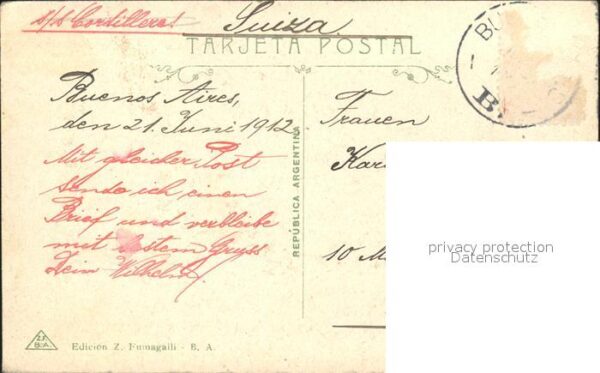 s/s Cordilleres Suiza
TARJETA POSTAL
Buenos Aires,
den 21. Juni 1912
Mit gleicher Post
sende ich einen
Brief und verbleibe
mit bestem Gruss
Dein Wilhelm.
REPÚBLICA ARGENTINA
Frauen
10
BU
B.
privacy protection
Datenschutz
Z.F.
B.A.
Edición Z. Fumagalli - B. A.